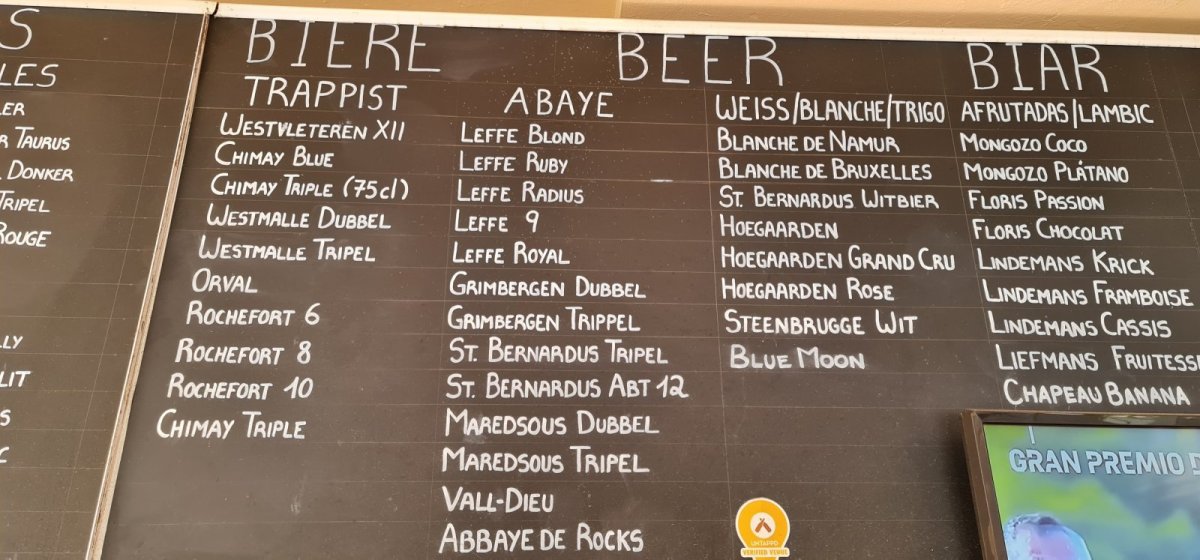 S
LES
LER
R TAURUS
DONKER
TRIPEL
ROUGE
LLY
LIT
S
C
BIERE BEER BIAR
TRAPPIST
WESTVLETEREN XII
CHIMAY BLUE
CHIMAY TRIPLE (75cl)
WESTMALLE DUBBEL
WESTMALLE TRIPEL
ORVAL
ROCHEFORT 6
ROCHEFORT 8
ROCHEFORT 10
CHIMAY TRIPLE
ABAYE
LEFFE BLOND
LEFFE RUBY
LEFFE RADIUS
LEFFE 9
LEFFE ROYAL
GRIMBERGEN DUBBEL
GRIMBERGEN TRIPPEL
ST. BERNARDUS TRIPEL
ST. BERNARDUS ABT 12
MAREDSOUS DUBBEL
MAREDSOUS TRIPEL
VALL-DIEU
ABBAYE DE ROCKS
WEISS/BLANCHE/TRIGO
BLANCHE DE NAMUR
BLANCHE DE BRUXELLES
ST. BERNARDUS WITBIER
HOEGAARDEN
HOEGAARDEN GRAND CRU
HOEGAARDEN ROSE
STEENBRUGGE WIT
BLUE MOON
AFRUTADAS/LAMBIC
MONGOZO COCO
MONGOZO PLÁTANO
FLORIS PASSION
FLORIS CHOCOLAT
LINDEMANS KRICK
LINDEMANS FRAMBOISE
LINDEMANS CASSIS
LIEFMANS FRUITESS
CHAPEAU BANANA
GRAN PREMIO D
UNTAPPD
VERIFIED VENUE